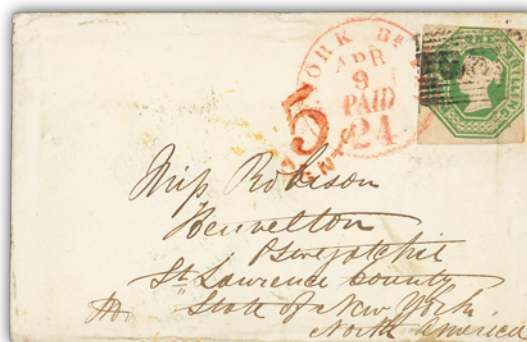 ORK Br
APR
9
PAID
24
5
CENTS
ONE SHILLING
Miss Robison
Heuvelton
St Lawrence County
State of New York
North America